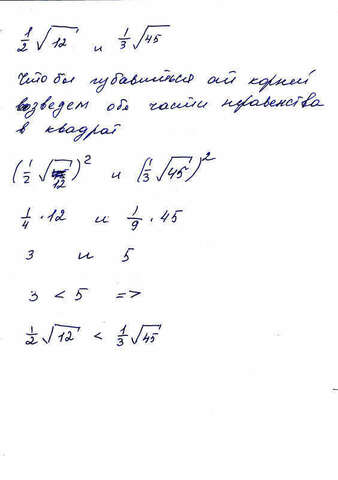 1/2 √12 и 1/3 √45
Чтобы избавиться от корней
возведем обе части неравенства
в квадрат
(1/2 √12)² и (1/3 √45)²
1/4 · 12 и 1/9 · 45
3 и 5
3 < 5 =>
1/2 √12 < 1/3 √45